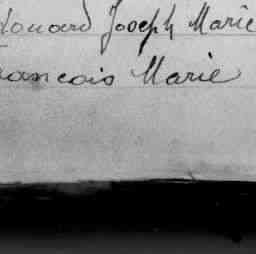 douard Joseph Marie
rancois Marie